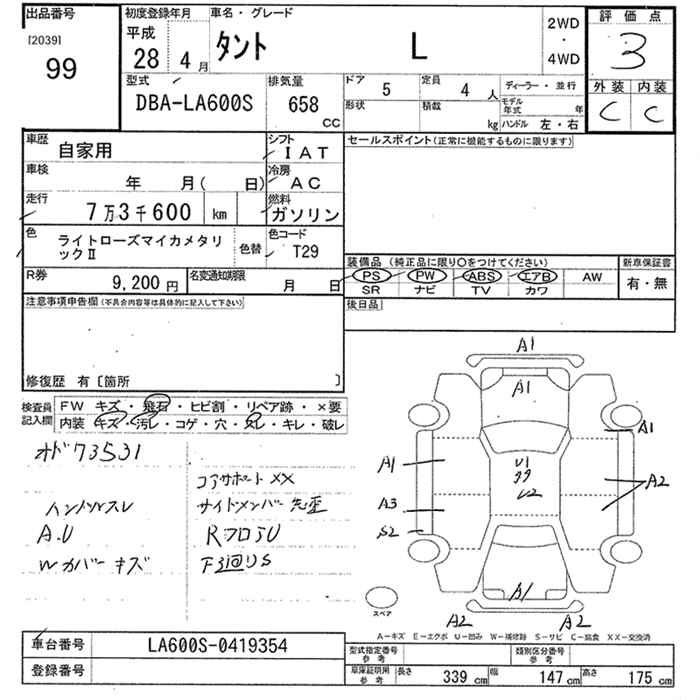 出品番号
[2039]
99
初度登録年月
平成
28 4 月
車名・グレード
タント L
2WD
・
4WD
評価点
3
外装 内装
C C
型式
DBA-LA600S
排気量
658
CC
ドア 5
形状
定員 4 人
積載 kg
ディーラー・並行
モデル
年式 年
ハンドル 左・右
車歴
自家用
シフト
IAT
車検
年 月( 日)
冷房
AC
走行
7万3千600 km
燃料
ガソリン
色
ライトローズマイカメタリ
ックⅡ
色替
色コード
T29
R券
9,200 円
名変通知期限
月 日
セールスポイント(正常に機能するものに限ります)
装備品 (純正品に限り○をつけてください)
PS PW ABS エアB AW
SR ナビ TV カワ
新車保証書
有・無
注意事項申告欄(不具合内容等は具体的に記入して下さい)
後日品
修復歴 有〔箇所 〕
検査員
記入欄
FW キズ・飛石・ヒビ割・リペア跡・×要
内装 キズ・汚レ・コゲ・穴・スレ・キレ・破レ
オド73531
コアサポートXX
ハンドルスレ
サイドメンバー先歪
A.U
RフロアU
Wカバーキズ
F3廻りS
A1
A1
A1
A1
U1
A2
A3
U2
S2
A1
A2 A2
スペア
A−キズ E−エクボ U−凹み W−補修跡 S−サビ C−腐食 XX−交換済
車台番号
LA600S-0419354
登録番号
型式指定番号
参考
類別区分番号
参考
車庫証明用
参考
長さ 339 cm
幅 147 cm
高さ 175 cm